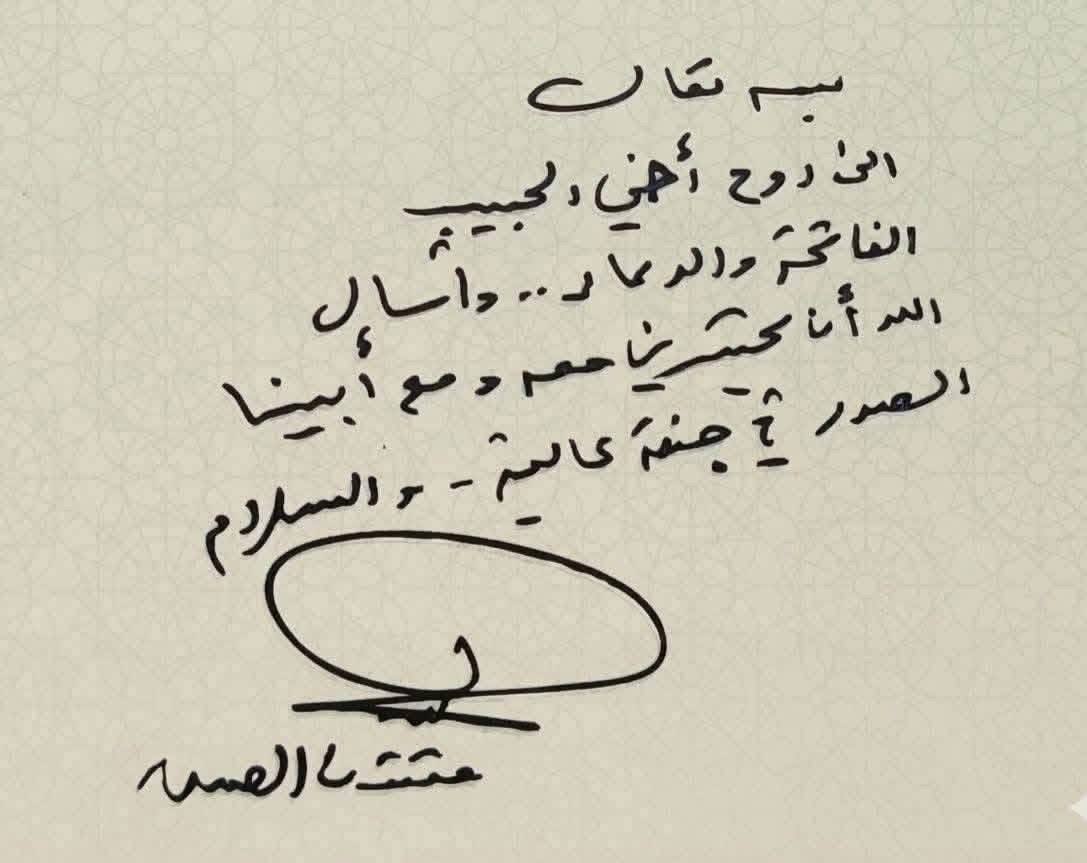 بسمه تعالى
الى روح أخي الحبيب
الفاتحة والدعاء .. وأسأل
الله أن يحشرنا معه ومع أبينا
الصدر في جنة عالية - والسلام
مقتدى الصدر